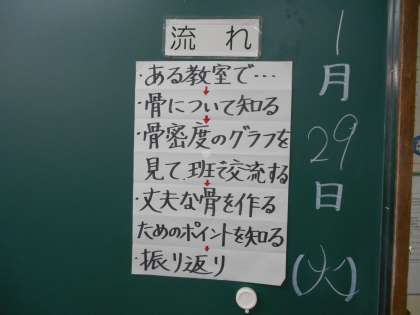 流れ
・ある教室で…
・骨について知る
・骨密度のグラフを
見て、班で交流する
・丈夫な骨を作る
ためのポイントを知る
・振り返り
1月29日(火)